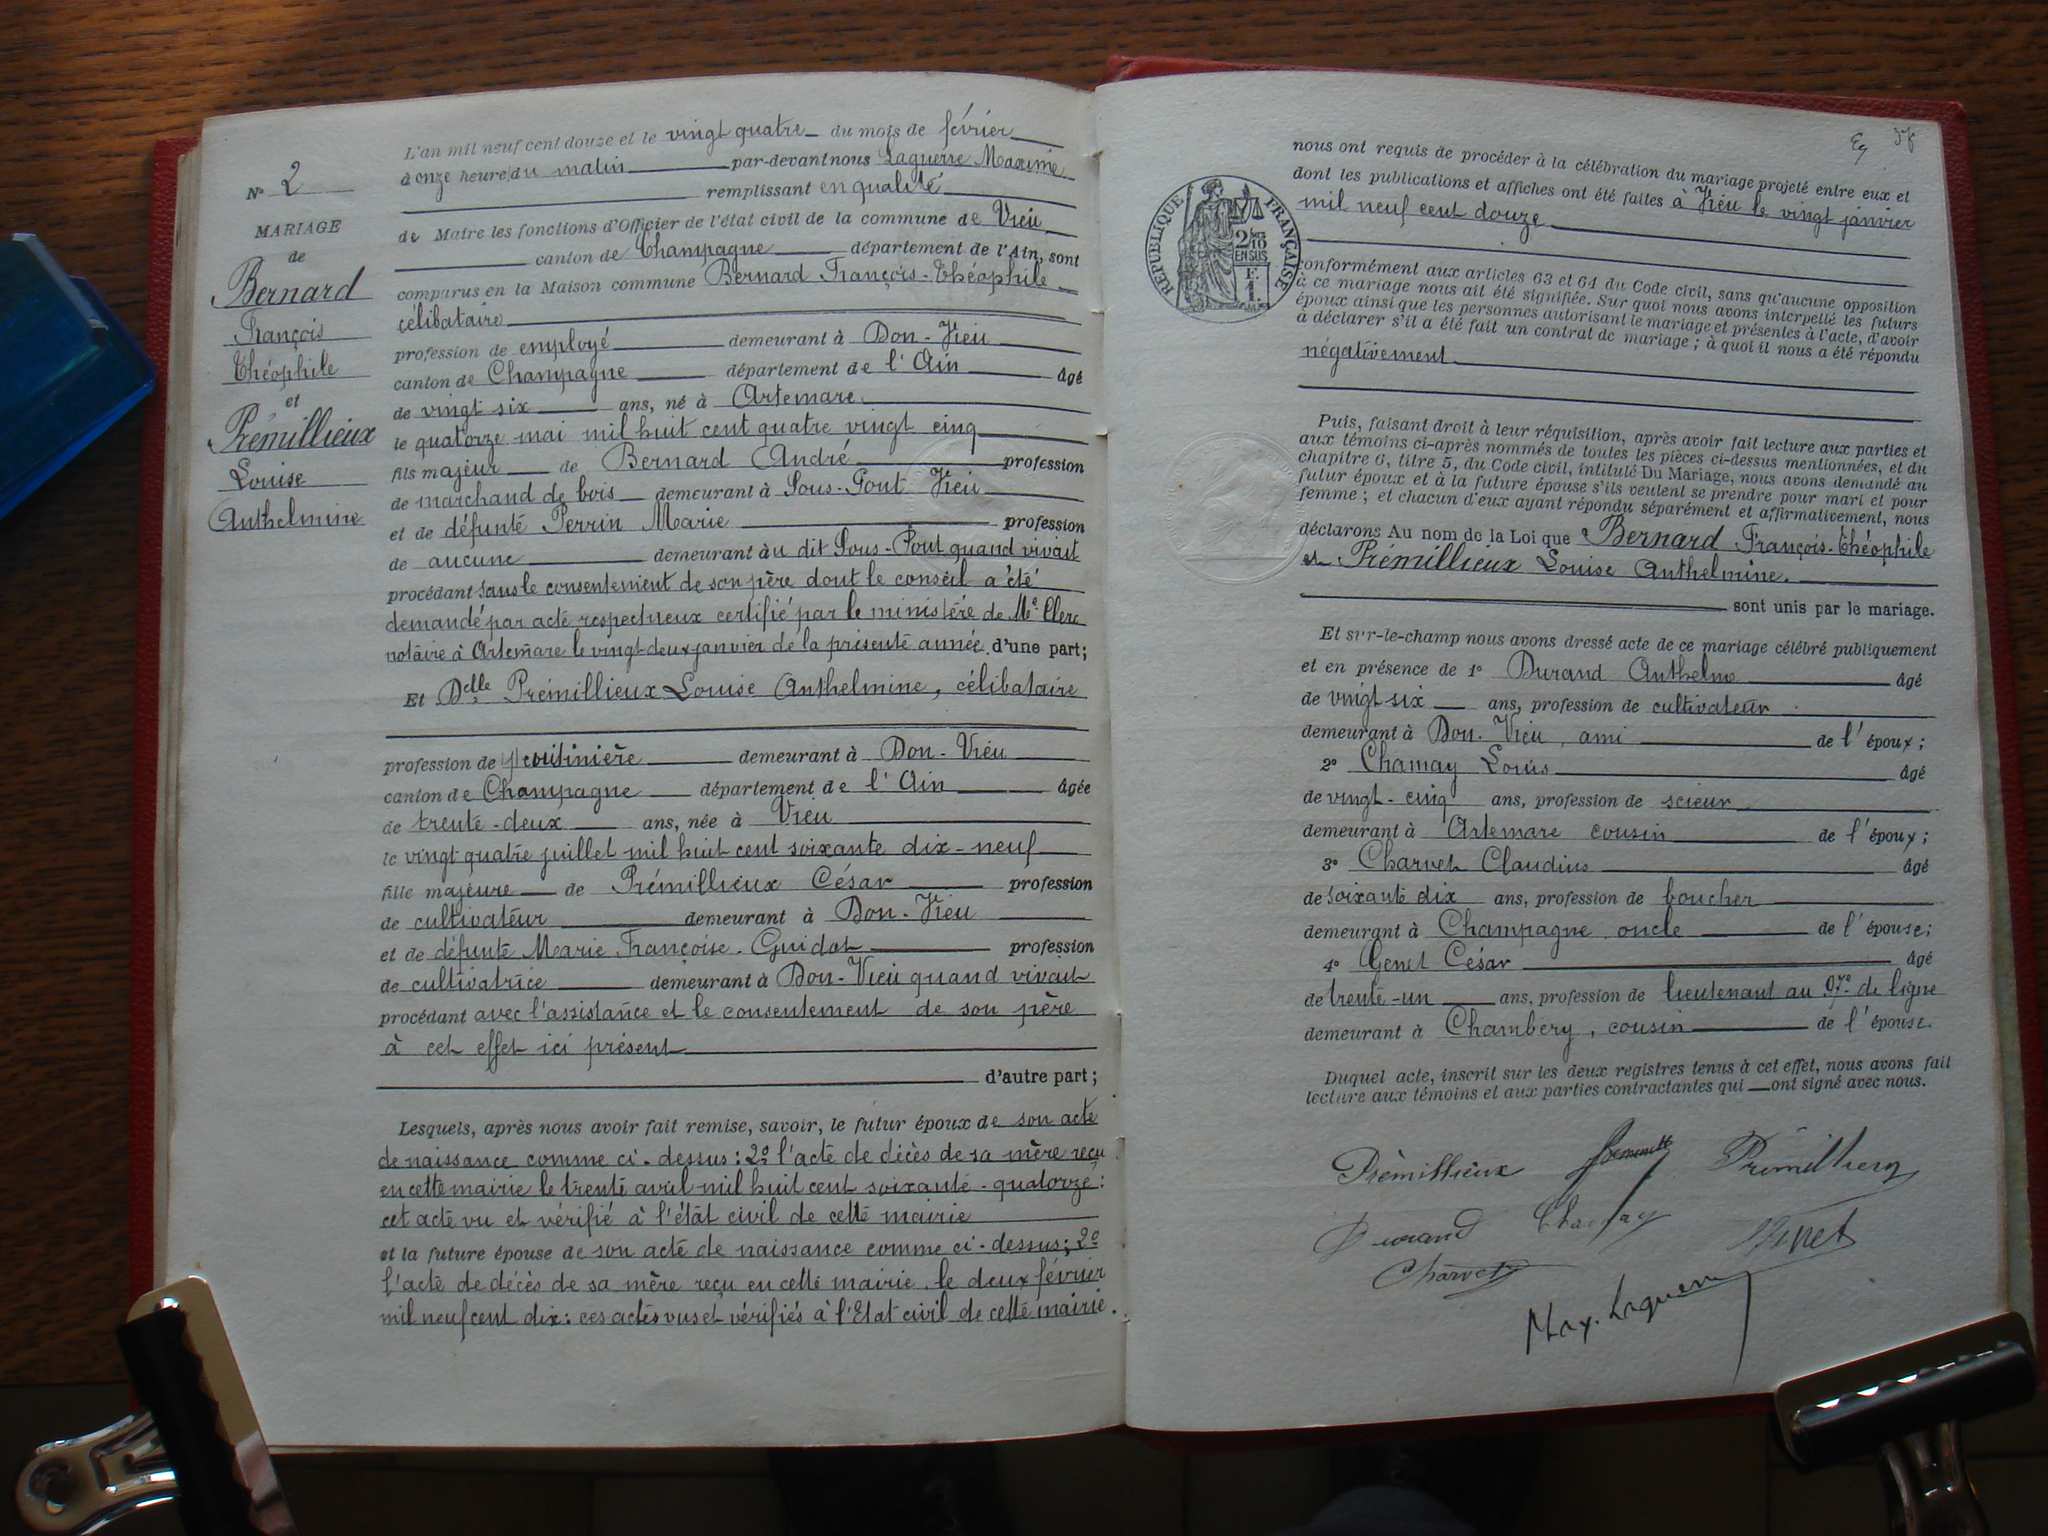 N° 2
MARIAGE
de
Bernard
François
Théophile
et
Prémillieux
Louise
Anthelmine
L'an mil neuf cent douze et le vingt quatre du mois de février
à onze heure du matin par-devant nous Laguerre Maxime
remplissant en qualité
de Maire les fonctions d'Officier de l'état civil de la commune de Vieu
canton de Champagne département de l'Ain, sont
comparus en la Maison commune Bernard François-Théophile
célibataire
profession de employé demeurant à Don-Vieu
canton de Champagne département de l'Ain âgé
de vingt six ans, né à Artemare
le quatorze mai mil huit cent quatre vingt cinq
fils majeur de Bernard André profession
de marchand de bois demeurant à Sous-Pont Vieu
et de défunte Perrin Marie profession
de aucune demeurant au dit Sous-Pont quand vivait
procédant sans le consentement de son père dont le conseil a été
demandé par acte respectueux certifié par le ministère de Me Clerc
notaire à Artemare le vingt-deux janvier de la présente année. d'une part;
Et Delle Prémillieux Louise Anthelmine, célibataire
profession de demeurant à Don-Vieu
canton de Champagne département de l'Ain âgée
de trente-deux ans, née à Vieu
le vingt quatre juillet mil huit cent soixante dix-neuf
fille majeure de Prémillieux César profession
de cultivateur demeurant à Don-Vieu
et de défunte Marie Françoise Guidot profession
de cultivatrice demeurant à Don-Vieu quand vivait
procédant avec l'assistance et le consentement de son père
à cet effet ici présent
d'autre part;
Lesquels, après nous avoir fait remise, savoir, le futur époux de son acte
de naissance comme ci-dessus: 2° l'acte de décès de sa mère reçu
en cette mairie le trente avril mil huit cent soixante-quatorze:
cet acte vu et vérifié à l'état civil de cette mairie
et la future épouse de son acte de naissance comme ci-dessus; 2°
l'acte de décès de sa mère reçu en cette mairie le deux février
mil neuf cent dix: ces actes vus et vérifiés à l'Etat civil de cette mairie.
nous ont requis de procéder à la célébration du mariage projeté entre eux et
dont les publications et affiches ont été faites à Vieu le vingt janvier
mil neuf cent douze
RÉPUBLIQUE FRANÇAISE
2/10
EN SUS
F.
1.
conformément aux articles 63 et 64 du Code civil, sans qu'aucune opposition
à ce mariage nous ait été signifiée. Sur quoi nous avons interpellé les futurs
époux ainsi que les personnes autorisant le mariage et présentes à l'acte, d'avoir
à déclarer s'il a été fait un contrat de mariage; à quoi il nous a été répondu
négativement
Puis, faisant droit à leur réquisition, après avoir fait lecture aux parties et
aux témoins ci-après nommés de toutes les pièces ci-dessus mentionnées, et du
chapitre 6, titre 5, du Code civil, intitulé Du Mariage, nous avons demandé au
futur époux et à la future épouse s'ils veulent se prendre pour mari et pour
femme; et chacun d'eux ayant répondu séparément et affirmativement, nous
déclarons Au nom de la Loi que Bernard François-Théophile
et Prémillieux Louise Anthelmine.
sont unis par le mariage.
Et sur-le-champ nous avons dressé acte de ce mariage célébré publiquement
et en présence de 1° Durand Anthelme âgé
de vingt six ans, profession de cultivateur
demeurant à Don-Vieu, ami de l'époux;
2° Chamay Louis âgé
de vingt-cinq ans, profession de scieur
demeurant à Artemare cousin de l'époux;
3° Charvet Claudius âgé
de soixante dix ans, profession de boucher
demeurant à Champagne oncle de l'épouse;
4° Genet César âgé
de trente-un ans, profession de lieutenant au 97e de ligne
demeurant à Chambéry, cousin de l'épouse.
Duquel acte, inscrit sur les deux registres tenus à cet effet, nous avons fait
lecture aux témoins et aux parties contractantes qui ont signé avec nous.
Prémillieux Prémillieux
Durand Chamay Genet
Charvet
Max. Laguerre